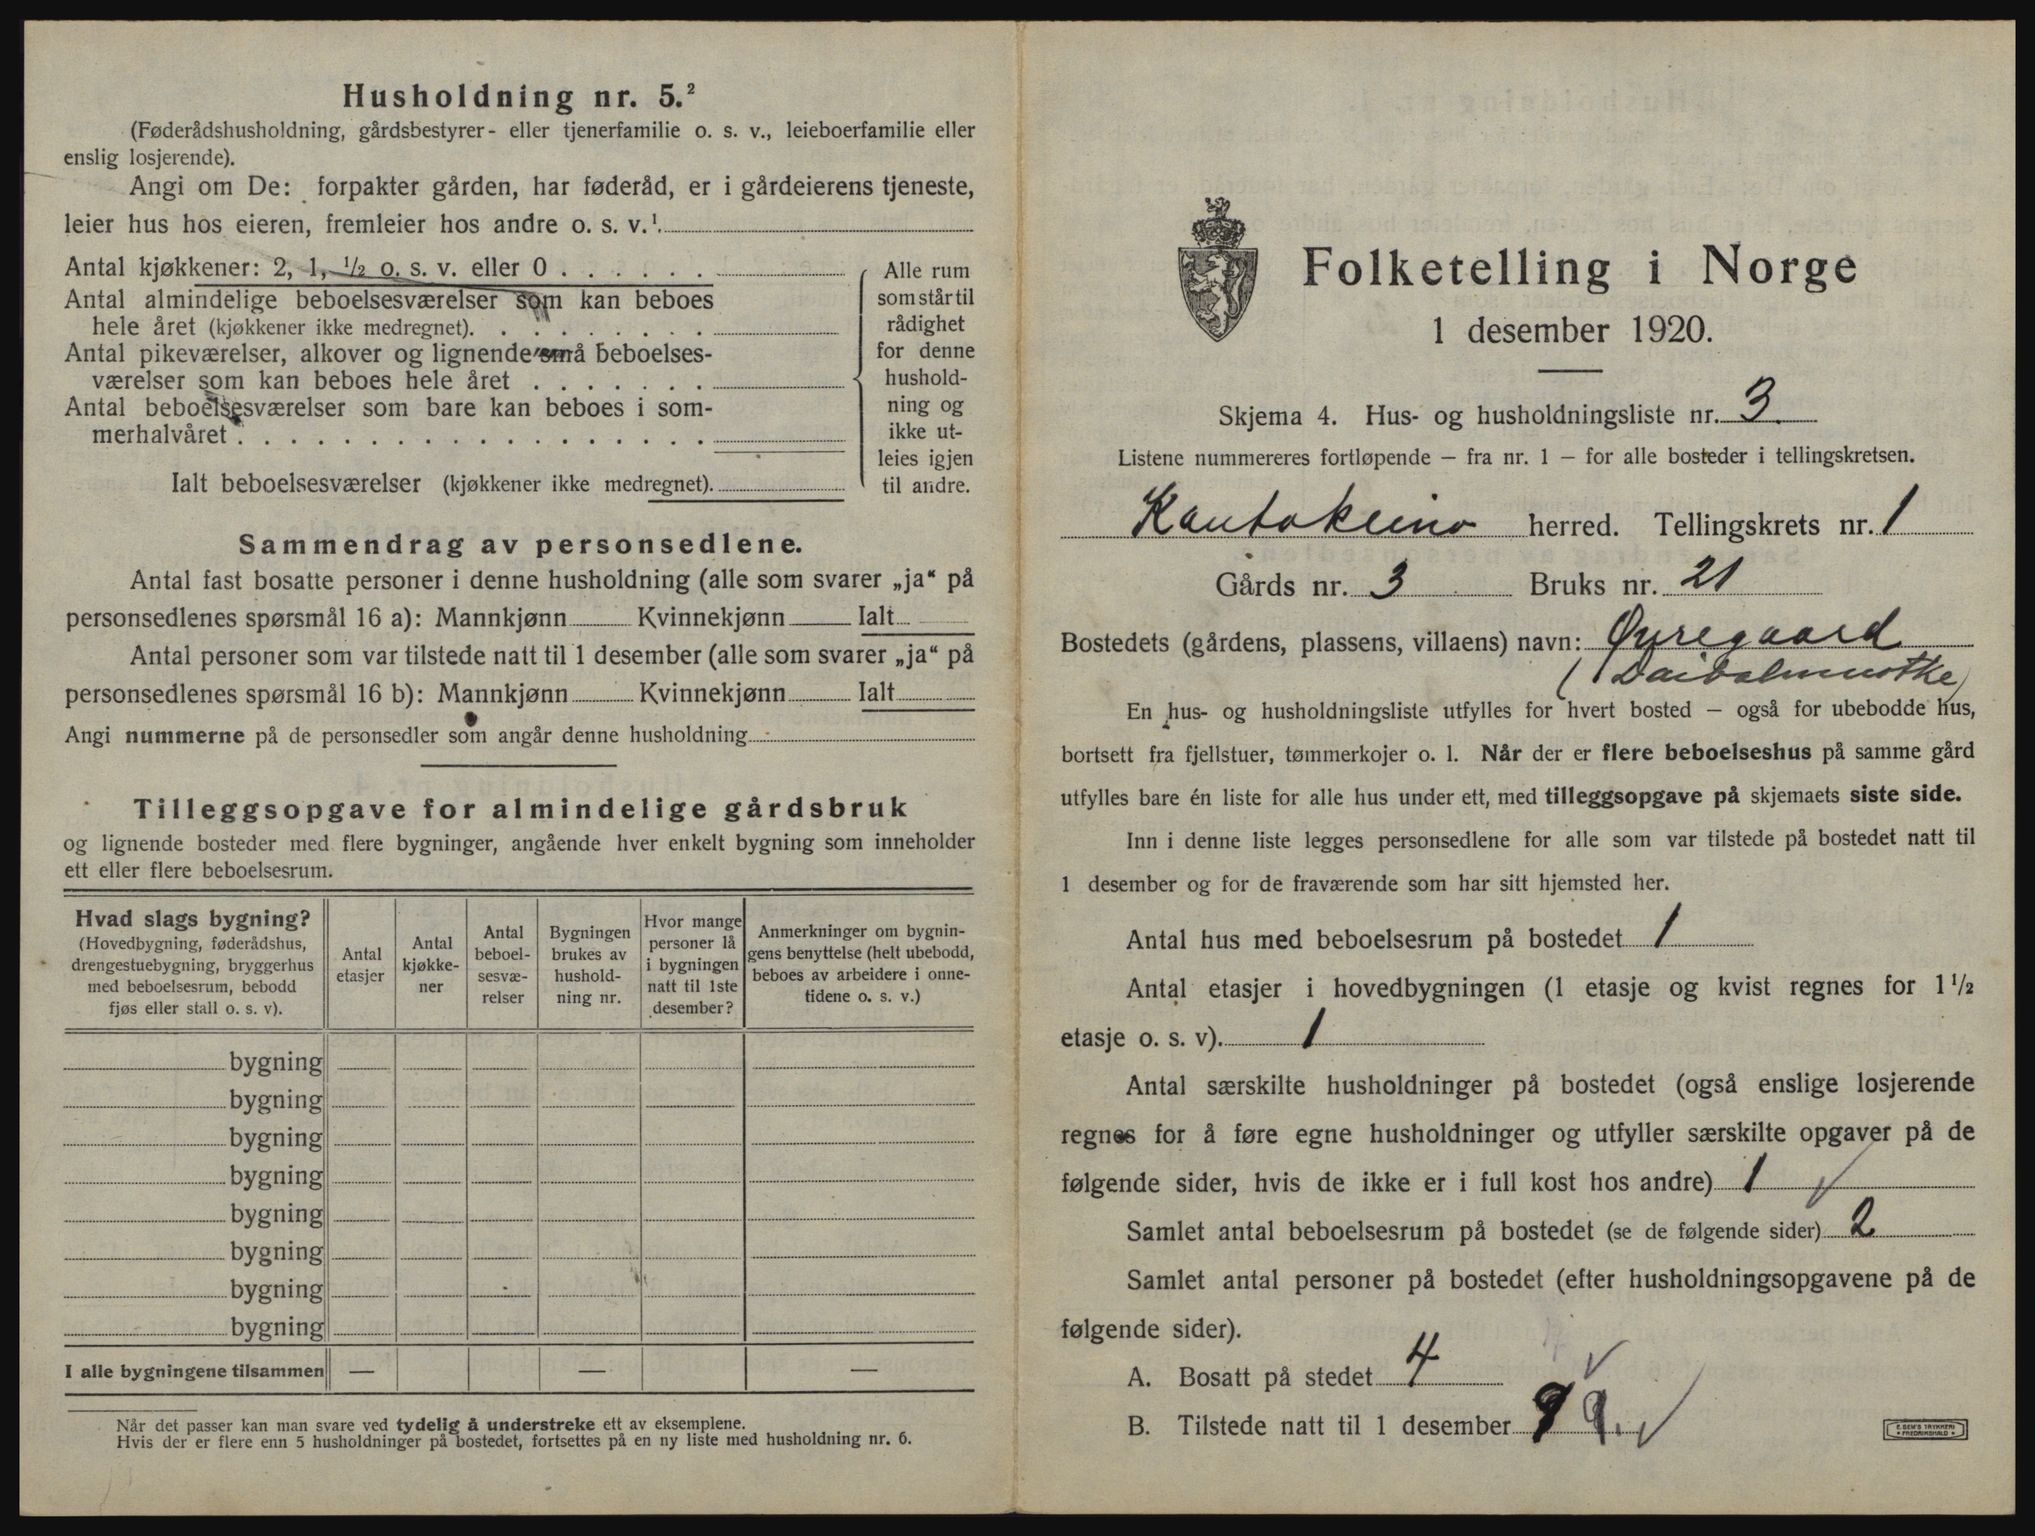 Husholdning nr. 5.²
(Føderådshusholdning, gårdsbestyrer- eller tjenerfamilie o. s. v., leieboerfamilie eller
enslig losjerende).
Angi om De: forpakter gården, har føderåd, er i gårdeierens tjeneste,
leier hus hos eieren, fremleier hos andre o. s. v.¹.
Antal kjøkkener: 2, 1, ½ o. s. v. eller 0 . . . . . .
Antal almindelige beboelsesværelser som kan beboes
hele året (kjøkkener ikke medregnet). . . . . . . . .
Antal pikeværelser, alkover og lignende små beboelses-
værelser som kan beboes hele året . . . . . . .
Antal beboelsesværelser som bare kan beboes i som-
merhalvåret . . . . . . . . . . . . . . . . . .
Ialt beboelsesværelser (kjøkkener ikke medregnet).
Alle rum
som står til
rådighet
for denne
hushold-
ning og
ikke ut-
leies igjen
til andre.
Sammendrag av personsedlene.
Antal fast bosatte personer i denne husholdning (alle som svarer „ja“ på
personsedlenes spørsmål 16 a): Mannkjønn Kvinnekjønn Ialt
Antal personer som var tilstede natt til 1 desember (alle som svarer „ja“ på
personsedlenes spørsmål 16 b): Mannkjønn Kvinnekjønn Ialt
Angi nummerne på de personsedler som angår denne husholdning
Tilleggsopgave for almindelige gårdsbruk
og lignende bosteder med flere bygninger, angående hver enkelt bygning som inneholder
ett eller flere beboelsesrum.
Hvad slags bygning?
(Hovedbygning, føderådshus,
drengestuebygning, bryggerhus
med beboelsesrum, bebodd
fjøs eller stall o. s. v).
Antal
etasjer
Antal
kjøkke-
ner
Antal
beboel-
sesvæ-
relser
Bygningen
brukes av
hushold-
ning nr.
Hvor mange
personer lå
i bygningen
natt til 1ste
desember?
Anmerkninger om bygnin-
gens benyttelse (helt ubebodd,
beboes av arbeidere i onne-
tidene o. s. v.)
bygning
bygning
bygning
bygning
bygning
bygning
bygning
bygning
I alle bygningene tilsammen — — —
Når det passer kan man svare ved tydelig å understreke ett av eksemplene.
Hvis der er flere enn 5 husholdninger på bostedet, fortsettes på en ny liste med husholdning nr. 6.
Folketelling i Norge
1 desember 1920.
Skjema 4. Hus- og husholdningsliste nr. 3
Listene nummereres fortløpende – fra nr. 1 – for alle bosteder i tellingskretsen.
Kautokeino herred. Tellingskrets nr. 1
Gårds nr. 3 Bruks nr. 21
Bostedets (gårdens, plassens, villaens) navn: Øvregaard
En hus- og husholdningsliste utfylles for hvert bosted – også for ubebodde hus,
bortsett fra fjellstuer, tømmerkojer o. l. Når der er flere beboelseshus på samme gård
utfylles bare én liste for alle hus under ett, med tilleggsopgave på skjemaets siste side.
Inn i denne liste legges personsedlene for alle som var tilstede på bostedet natt til
1 desember og for de fraværende som har sitt hjemsted her.
Antal hus med beboelsesrum på bostedet 1
Antal etasjer i hovedbygningen (1 etasje og kvist regnes for 1½
etasje o. s. v). 1
Antal særskilte husholdninger på bostedet (også enslige losjerende
regnes for å føre egne husholdninger og utfyller særskilte opgaver på de
følgende sider, hvis de ikke er i full kost hos andre) 1
Samlet antal beboelsesrum på bostedet (se de følgende sider) 2
Samlet antal personer på bostedet (efter husholdningsopgavene på de
følgende sider).
A. Bosatt på stedet 4
B. Tilstede natt til 1 desember 9 9.
E. SEM'S TRYKKERI
FREDRIKSHALD